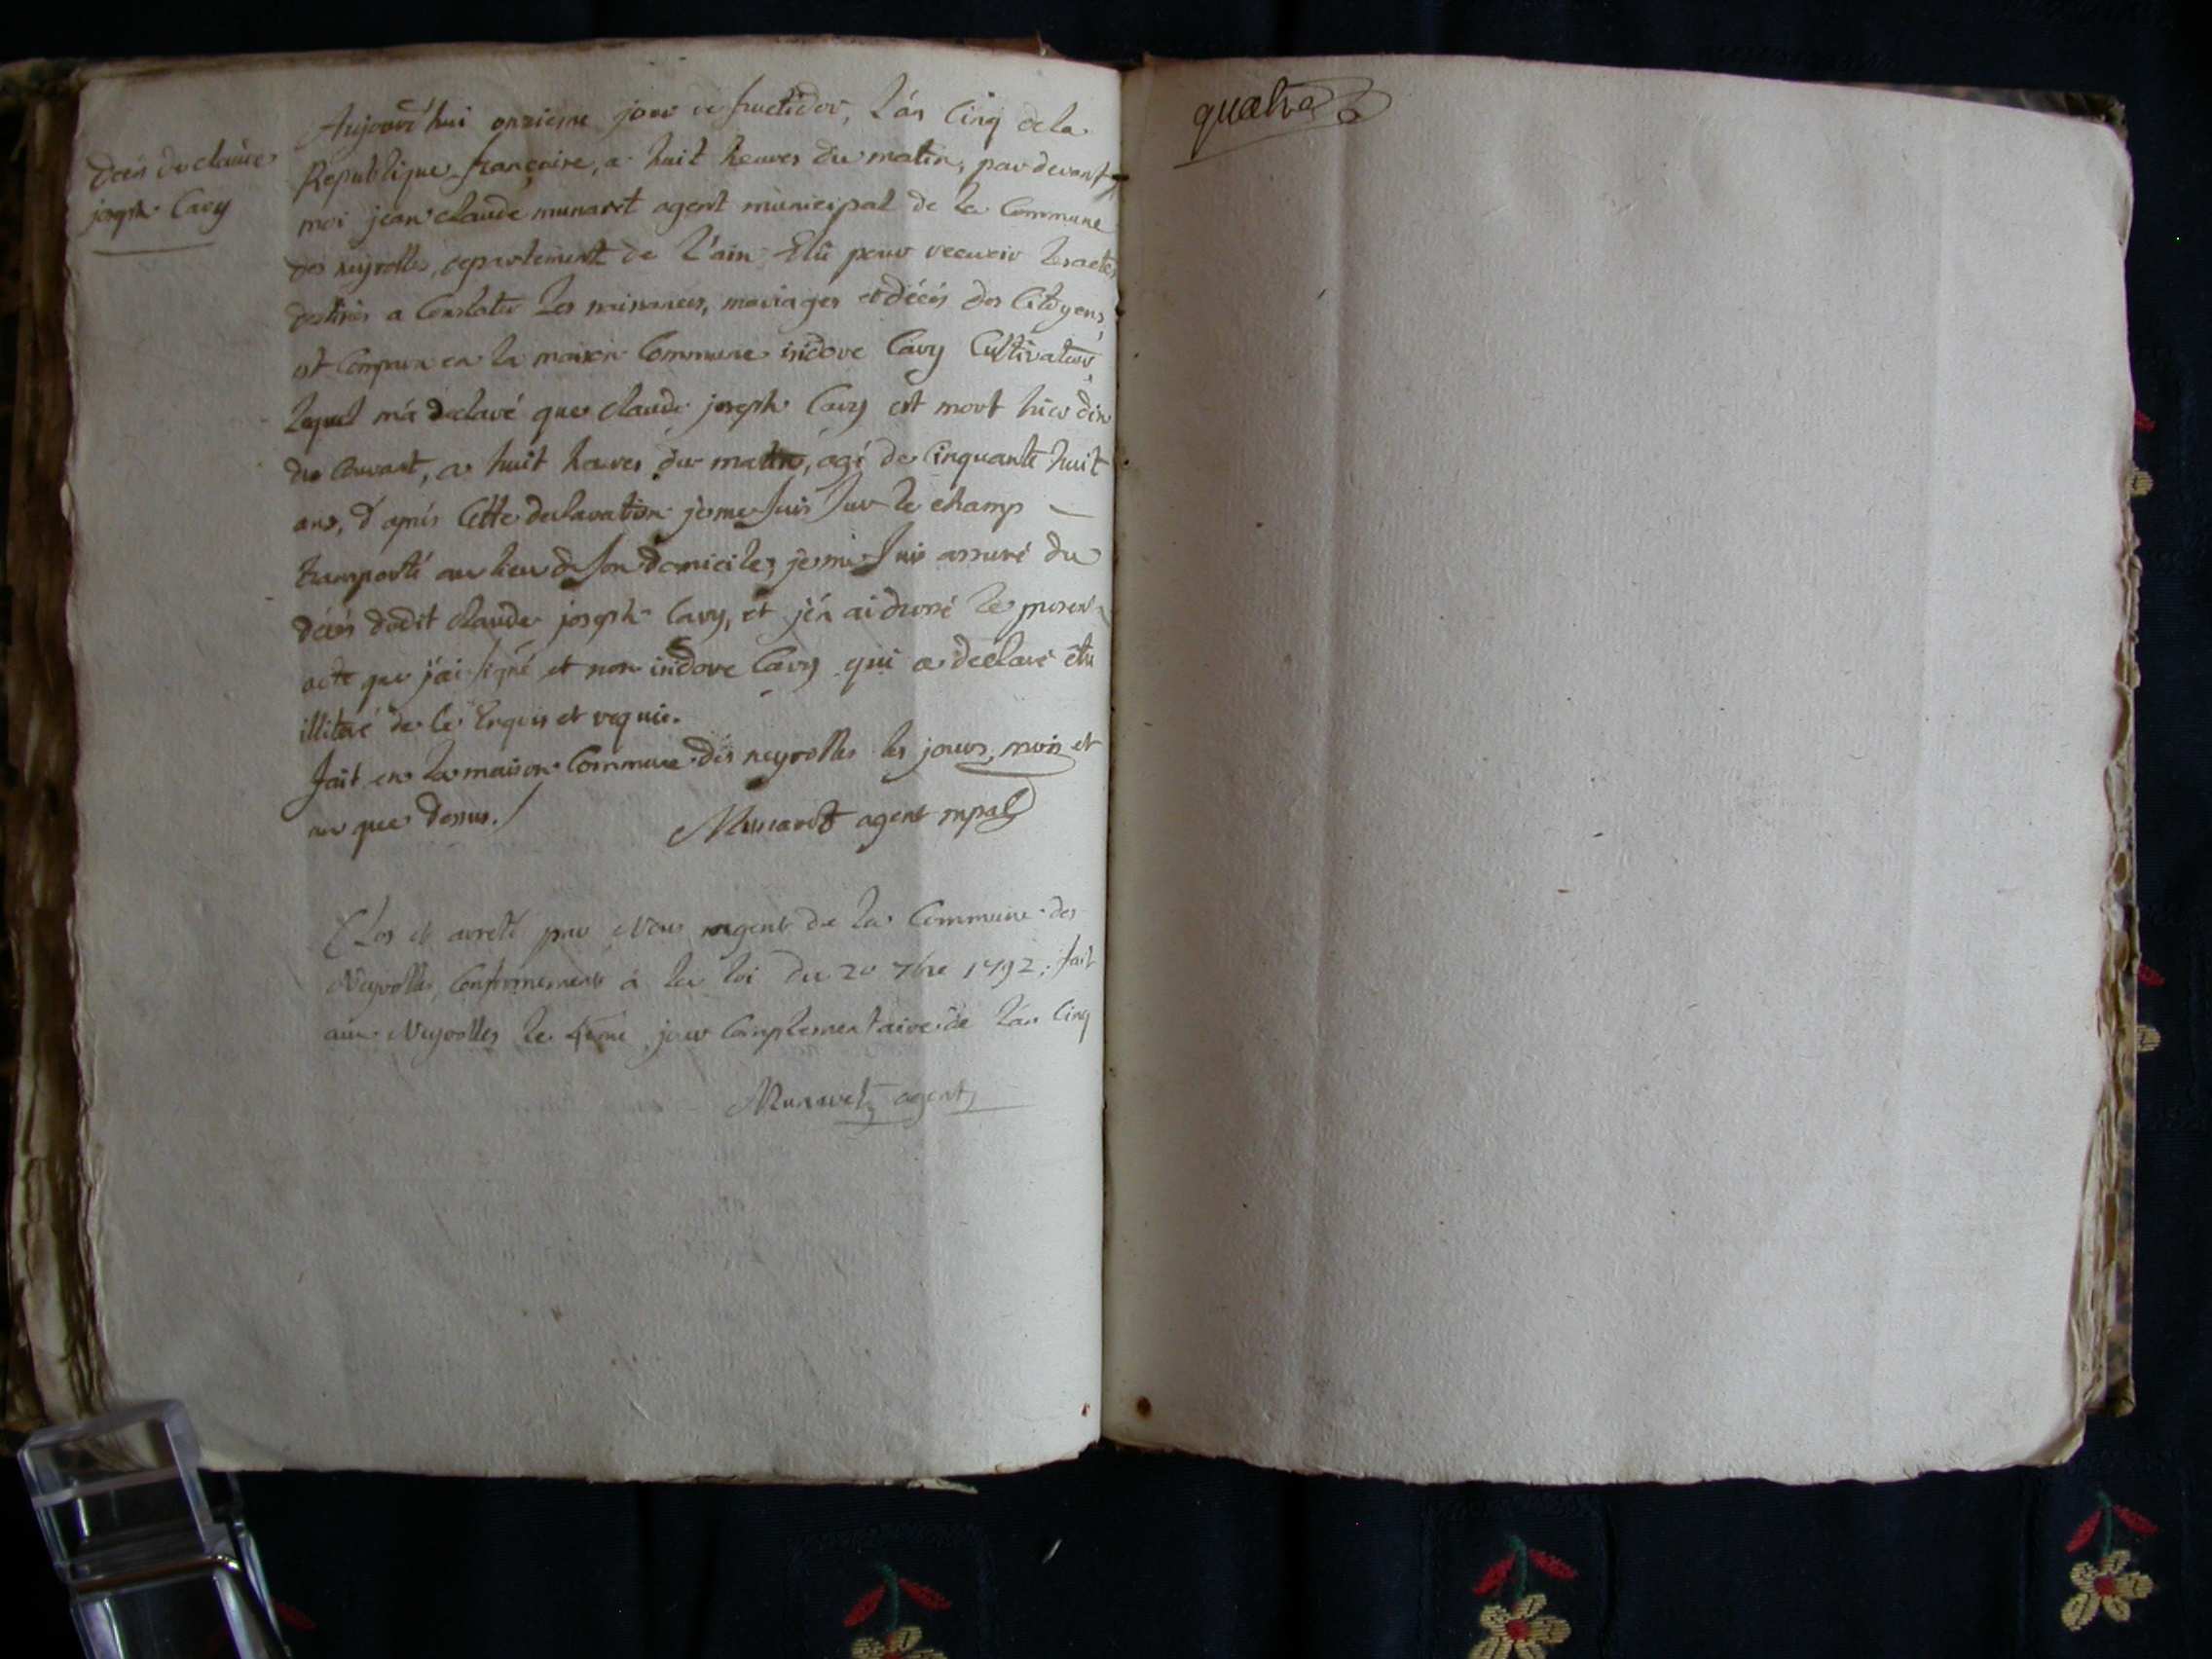 décès de claude
joseph Cavy
Aujourd'hui onzieme jour de fructidor, L'an Cinq de la
Republique française, a huit heures du matin, par devant
moi jean claude munaret agent municipal de la Commune
des neyrolles, departement de l'ain Elû pour recevoir les actes
destinés a Constater les naissances, mariages et décés des Citoyens,
est Comparu en la maison Commune isidore Cavy Cultivateur,
lequel m'a declaré que claude joseph Cavy est mort hier dix
du Courant, a huit heures du matin, agé de Cinquante huit
ans, d'aprés Cette declaration je me suis sur le champ
transporté au lieu de son domicile, je me suis assuré du
décés dudit claude joseph Cavy, et j'en ai dressé le present
acte que j'ai signé et non isidore Cavy qui a declaré être
illiteré de ce Enquis et requis.
fait en la maison Commune des neyrolles les jours, mois et
an que dessus.
Munaret agent mpal
Clos et arreté par Nous agent de la Commune des
Neyrolles, Conformement à la loi du 20 7bre 1792; fait
aux Neyrolles le 4eme jour Complementaire de L'an Cinq
Munaret agent
quatre